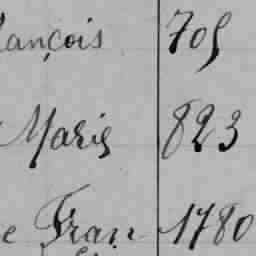 ançois 705
Marie 823
e Fran 1780